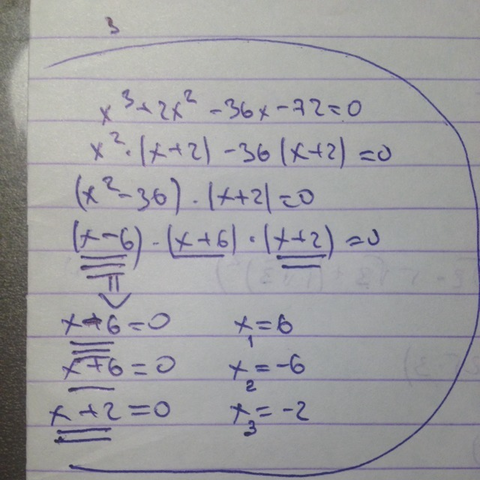 3
x³+2x²-36x-72=0
x²·(x+2)-36(x+2)=0
(x²-36)·(x+2)=0
(x-6)·(x+6)·(x+2)=0
x-6=0 x₁=6
x+6=0 x₂=-6
x+2=0 x₃=-2